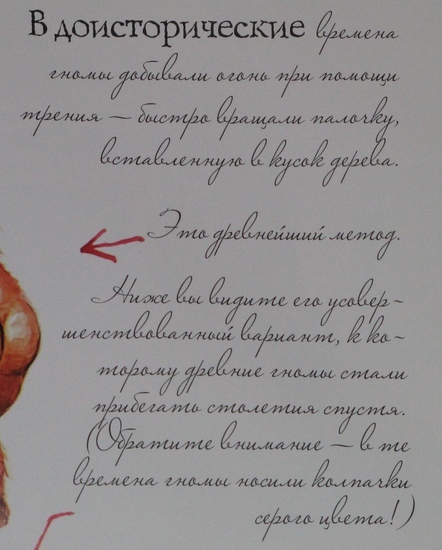 В доисторические времена
гномы добывали огонь при помощи
трения — быстро вращали палочку,
вставленную в кусок дерева.
Это древнейший метод.
Ниже вы видите его усовер-
шенствованный вариант, к ко-
торому древние гномы стали
прибегать столетия спустя.
(Обратите внимание — в те
времена гномы носили колпачки
серого цвета!)